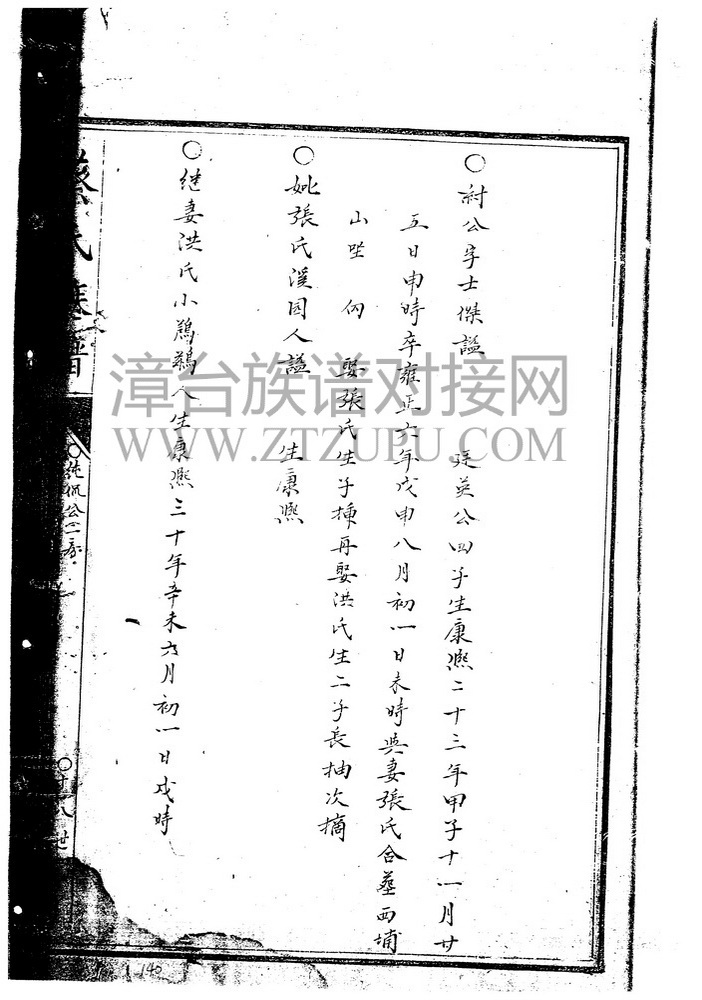 ○衬公字士傑謚 廷英公四子生康熙二十三年甲子十一月廿
五日申時卒雍正六年戊申八月初一日未時與妻張氏合墓西埔
山坐 向 娶張氏生子揀再娶洪氏生二子長抽次摘
○妣張氏溪园人謚 生康熙
○继妻洪氏小鹧鹚人生康熙三十年辛未六月初一日戌時
蔡氏族譜
○純侃公二房
○十八世
140
漳台族谱对接网
WWW.ZTZUPU.COM